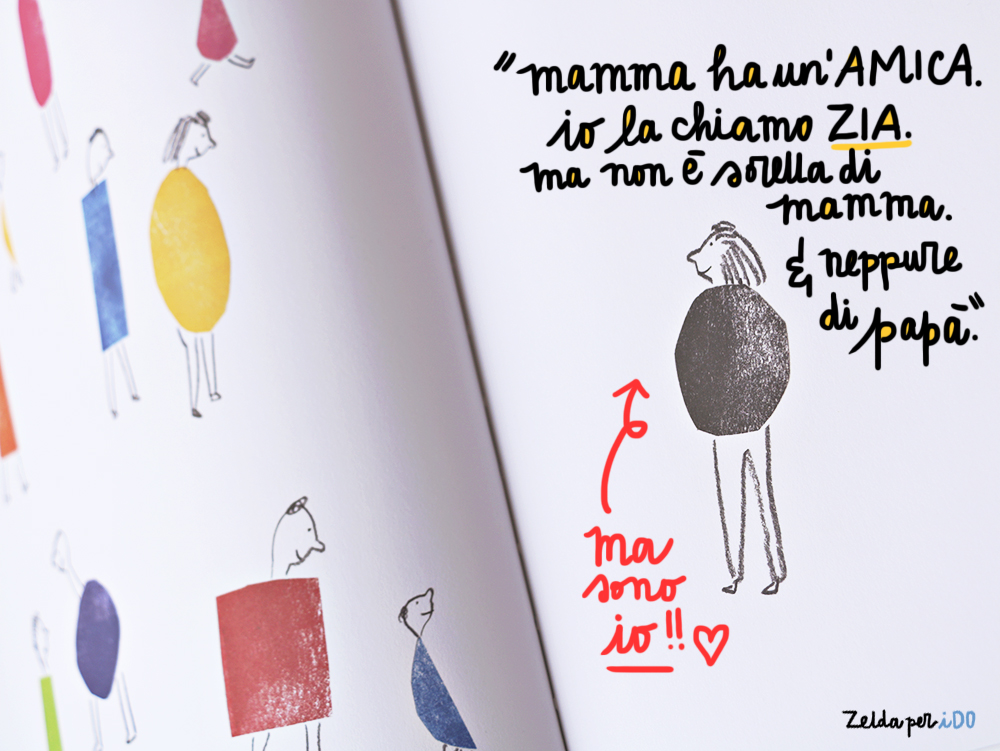 "mamma ha un'AMICA.
io la chiamo ZIA.
ma non è sorella di
mamma.
E neppure
di papà."
ma
sono
io!!
Zelda per iDO